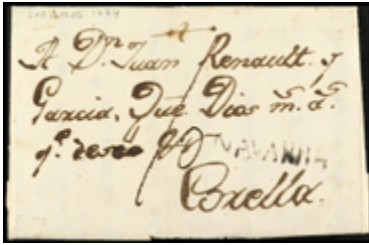 A Dn. Juan Renault. y
Garcia, Que Dios ms. as.
qe. deseo
NAVARRA
Corella.